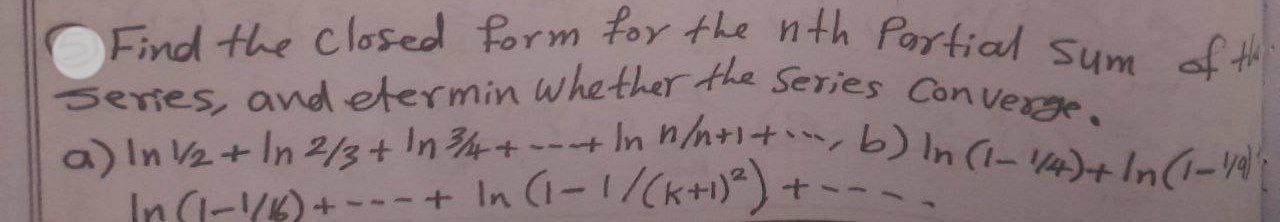 Find the Closed form for the nth Partial Sum of the
series, and etermin whether the Series Converge.
a) ln 1/2 + ln 2/3 + ln 3/4 + ---- + ln n/n+1 + ...., b) ln (1 - 1/4) + ln (1 - 1/9)
ln (1 - 1/16) + ---- + ln (1 - 1/(k+1)²) + ----.